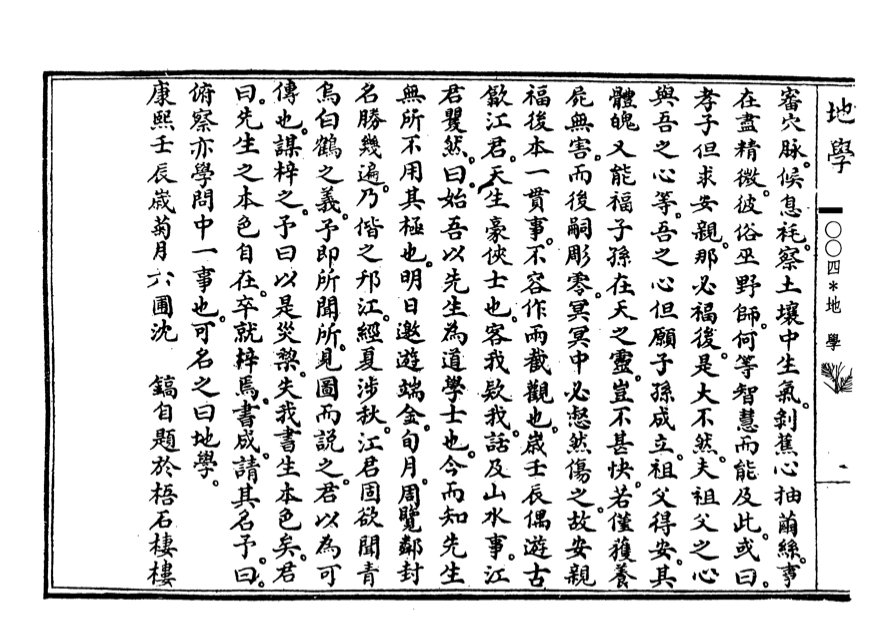 地學
〇〇四*地 學
審穴脉。候息耗。察土壤中生氣。剝蕉心抽繭絲。事
在盡精微。彼俗巫野師。何等智慧而能及此。或曰。
孝子但求安親。那必福後。是大不然。夫祖父之心
與吾之心等。吾之心但願子孫成立。祖父得安。其
體魄又能福子孫在天之靈。豈不甚快。若僅獲養
屍無害。而後嗣彫零。冥冥中必愀然傷之。故安親
福後本一貫事。不容作兩截觀也。歲壬辰偶遊古
歙江君。天生豪俠士也。客我欵我。話及山水事。江
君瞿然。曰。始吾以先生為道學士也。今而知先生
無所不用其極也。明日邀遊端金。旬月周覽鄰封
名勝幾遍。乃偕之邗江。經夏涉秋。江君固欲聞青
烏白鶴之義。予即所聞所見圖而說之。君以為可
傳也。謀梓之。予曰以是災梨。失我書生本色矣。君
曰。先生之本色自在。卒就梓焉。書成。請其名予曰。
俯察亦學問中一事也。可名之曰地學。
康熙壬辰歲菊月六圃沈 鎬自題於梧石棲樓